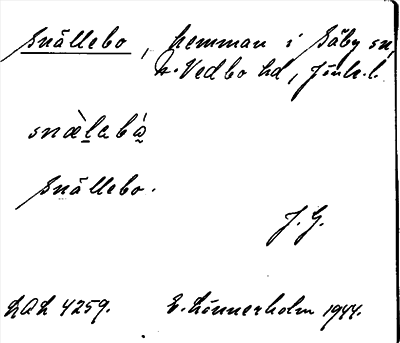 Snällebo, hemman i Säby sn,
N. Vedbo hd, Jönk. l.
snæ̀labá̱
Snällebo.
J. G.
LAL 4259. E. Lönnerholm 1944.